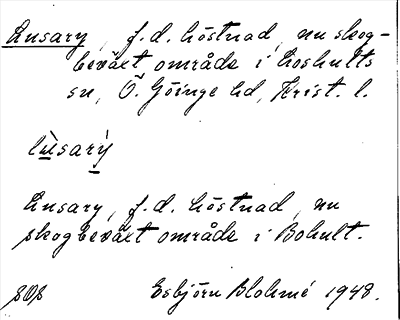 Lusary, f.d. höstnad, nu skog-
beväxt område i Loshults
sn, Ö. Göinge hd, Krist. l.
lùsarỳ
Lusary, f.d. höstnad, nu
skogbeväxt område i Bohult.
Esbjörn Blohmé 1948.